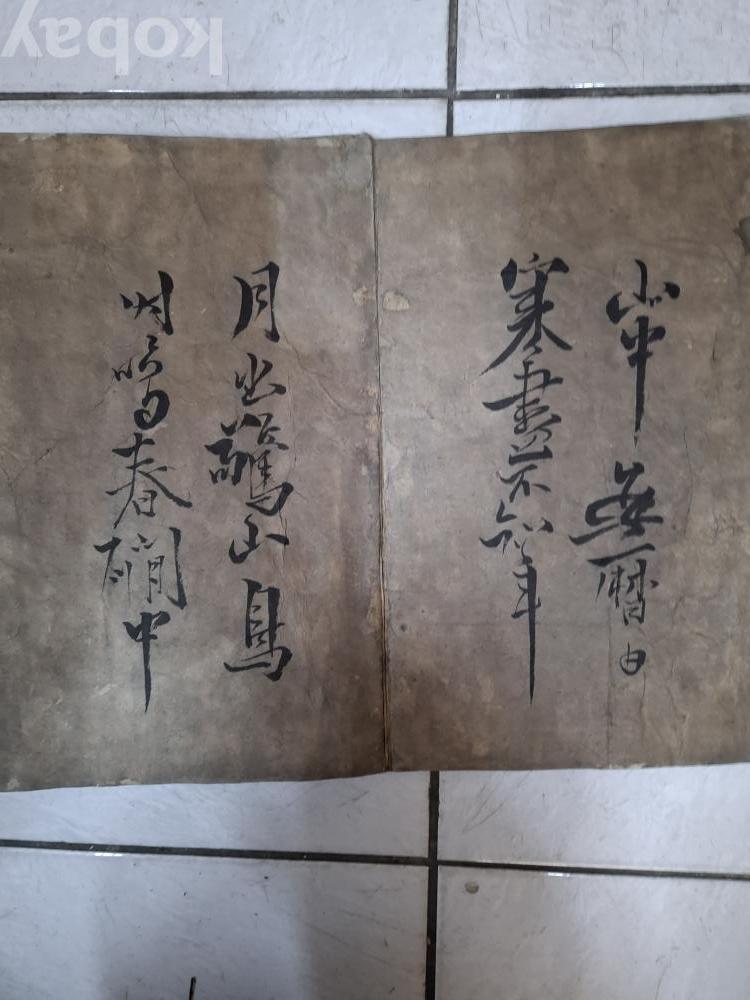 山中無曆日
寒盡不知年
月出驚山鳥
時鳴春澗中
kobay